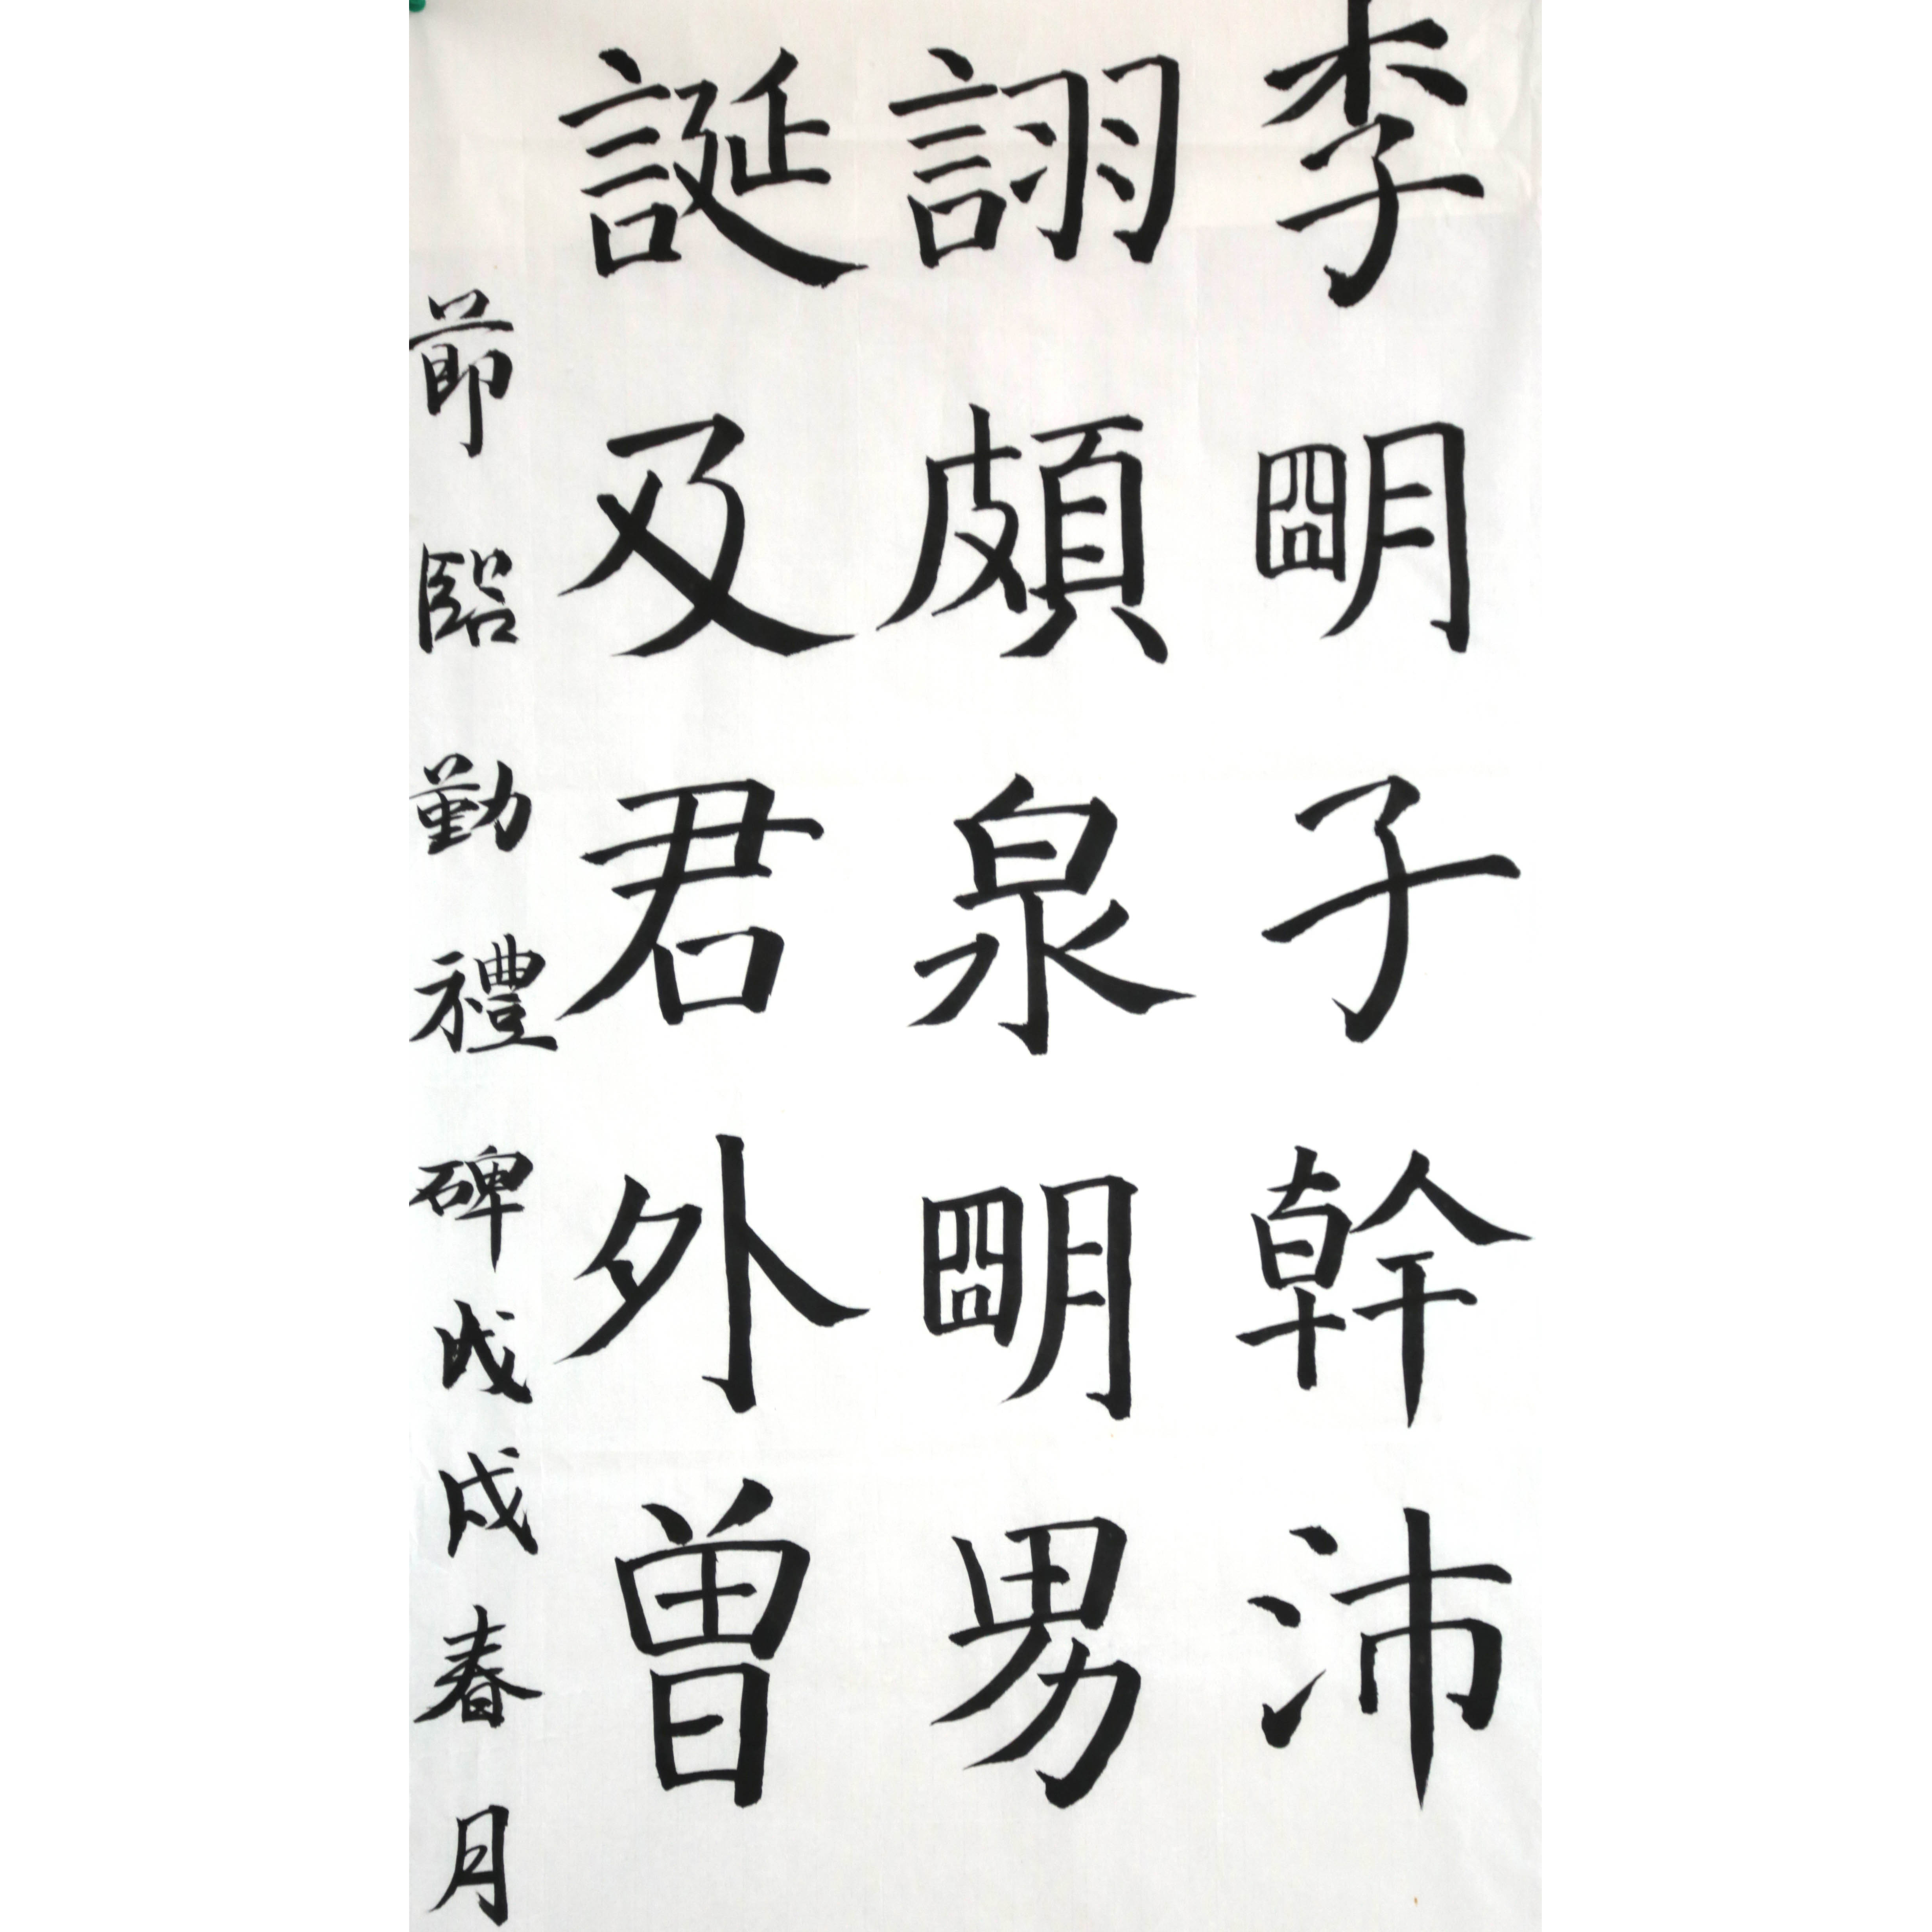 李朙子幹沛
詡頗泉朙男
誕及君外曾
節臨勤禮碑戊戌春月